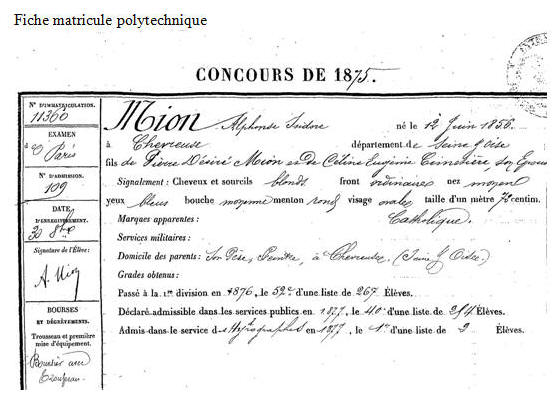 Fiche matricule polytechnique
CONCOURS DE 1875.
N° D'IMMATRICULATION.
11360
EXAMEN
à Paris
N° D'ADMISSION.
109
DATE D'ENREGISTREMENT.
30 8bre
Signature de l'Élève:
A. Mion
BOURSES
ET DÉGRÈVEMENTS.
Trousseau et première
mise d'équipement.
Boursier avec
Trousseau.
Mion Alphonse Isidore né le 12 Juin 1856.
à Chevreuse département de Seine & Oise
fils de Pierre Désiré Mion et de Céline Eugénie son Épouse
Signalement: Cheveux et sourcils blonds front ordinaire nez moyen
yeux bleus bouche moyenne menton rond visage ovale taille d'un mètre centim.
Marques apparentes: Catholique.
Services militaires:
Domicile des parents: Son Père, Peintre, à Chevreuse. (Seine & Oise)
Grades obtenus:
Passé à la 1re division en 1876, le 52e d'une liste de 267 Élèves.
Déclaré admissible dans les services publics en 1877, le 40e d'une liste de 214 Élèves.
Admis dans le service des Hydrographes en 1877, le 1er d'une liste de 2 Élèves.